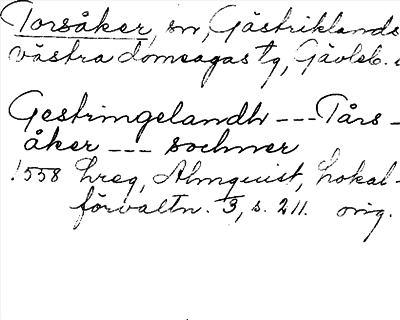 Torsåker, sn, Gästriklands
västra domsagas tg, Gävleb.
Gestringelandh --- Tårs-
åker --- sochner
1558 hreg, Almquist, Lokal-
förvaltn. 3, s. 211. orig.